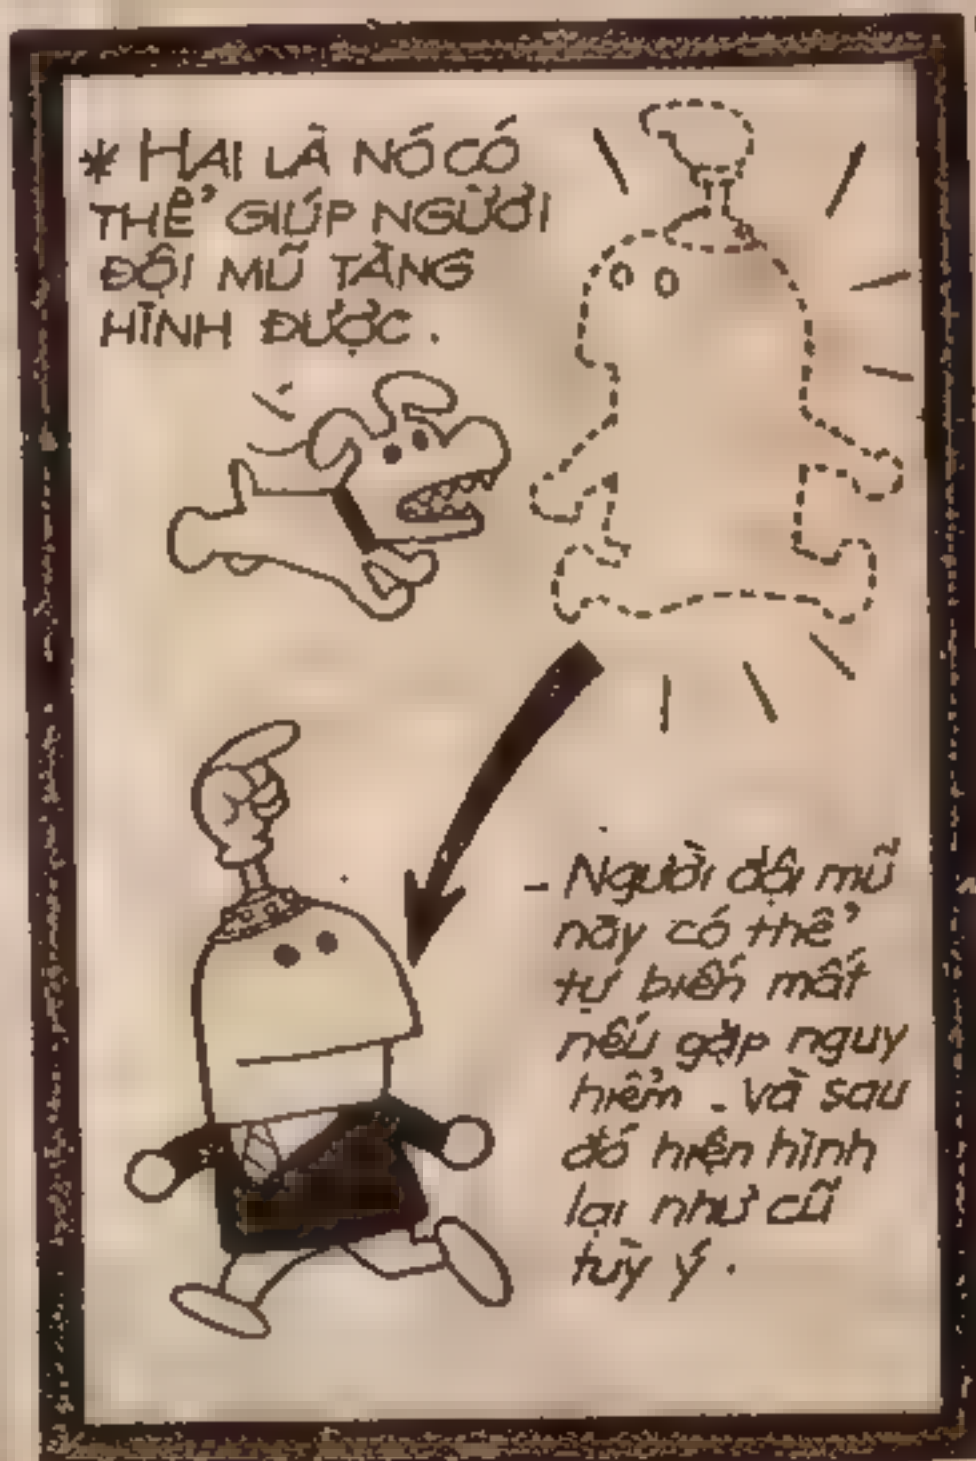 * HAI LÀ NÓ CÓ
THỂ GIÚP NGƯỜI
ĐỘI MŨ TÀNG
HÌNH ĐƯỢC.
- Người đội mũ
này có thể
tự biến mất
nếu gặp nguy
hiểm. Và sau
đó hiện hình
lại như cũ
tùy ý.